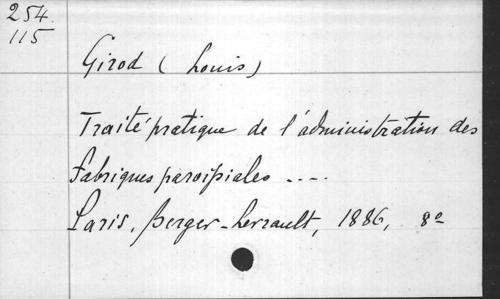 254.
115
Girod (Louis)
Traité pratique de l'administration des
fabriques paroissiales ....
Paris, Berger-Levrault, 1886, 8º